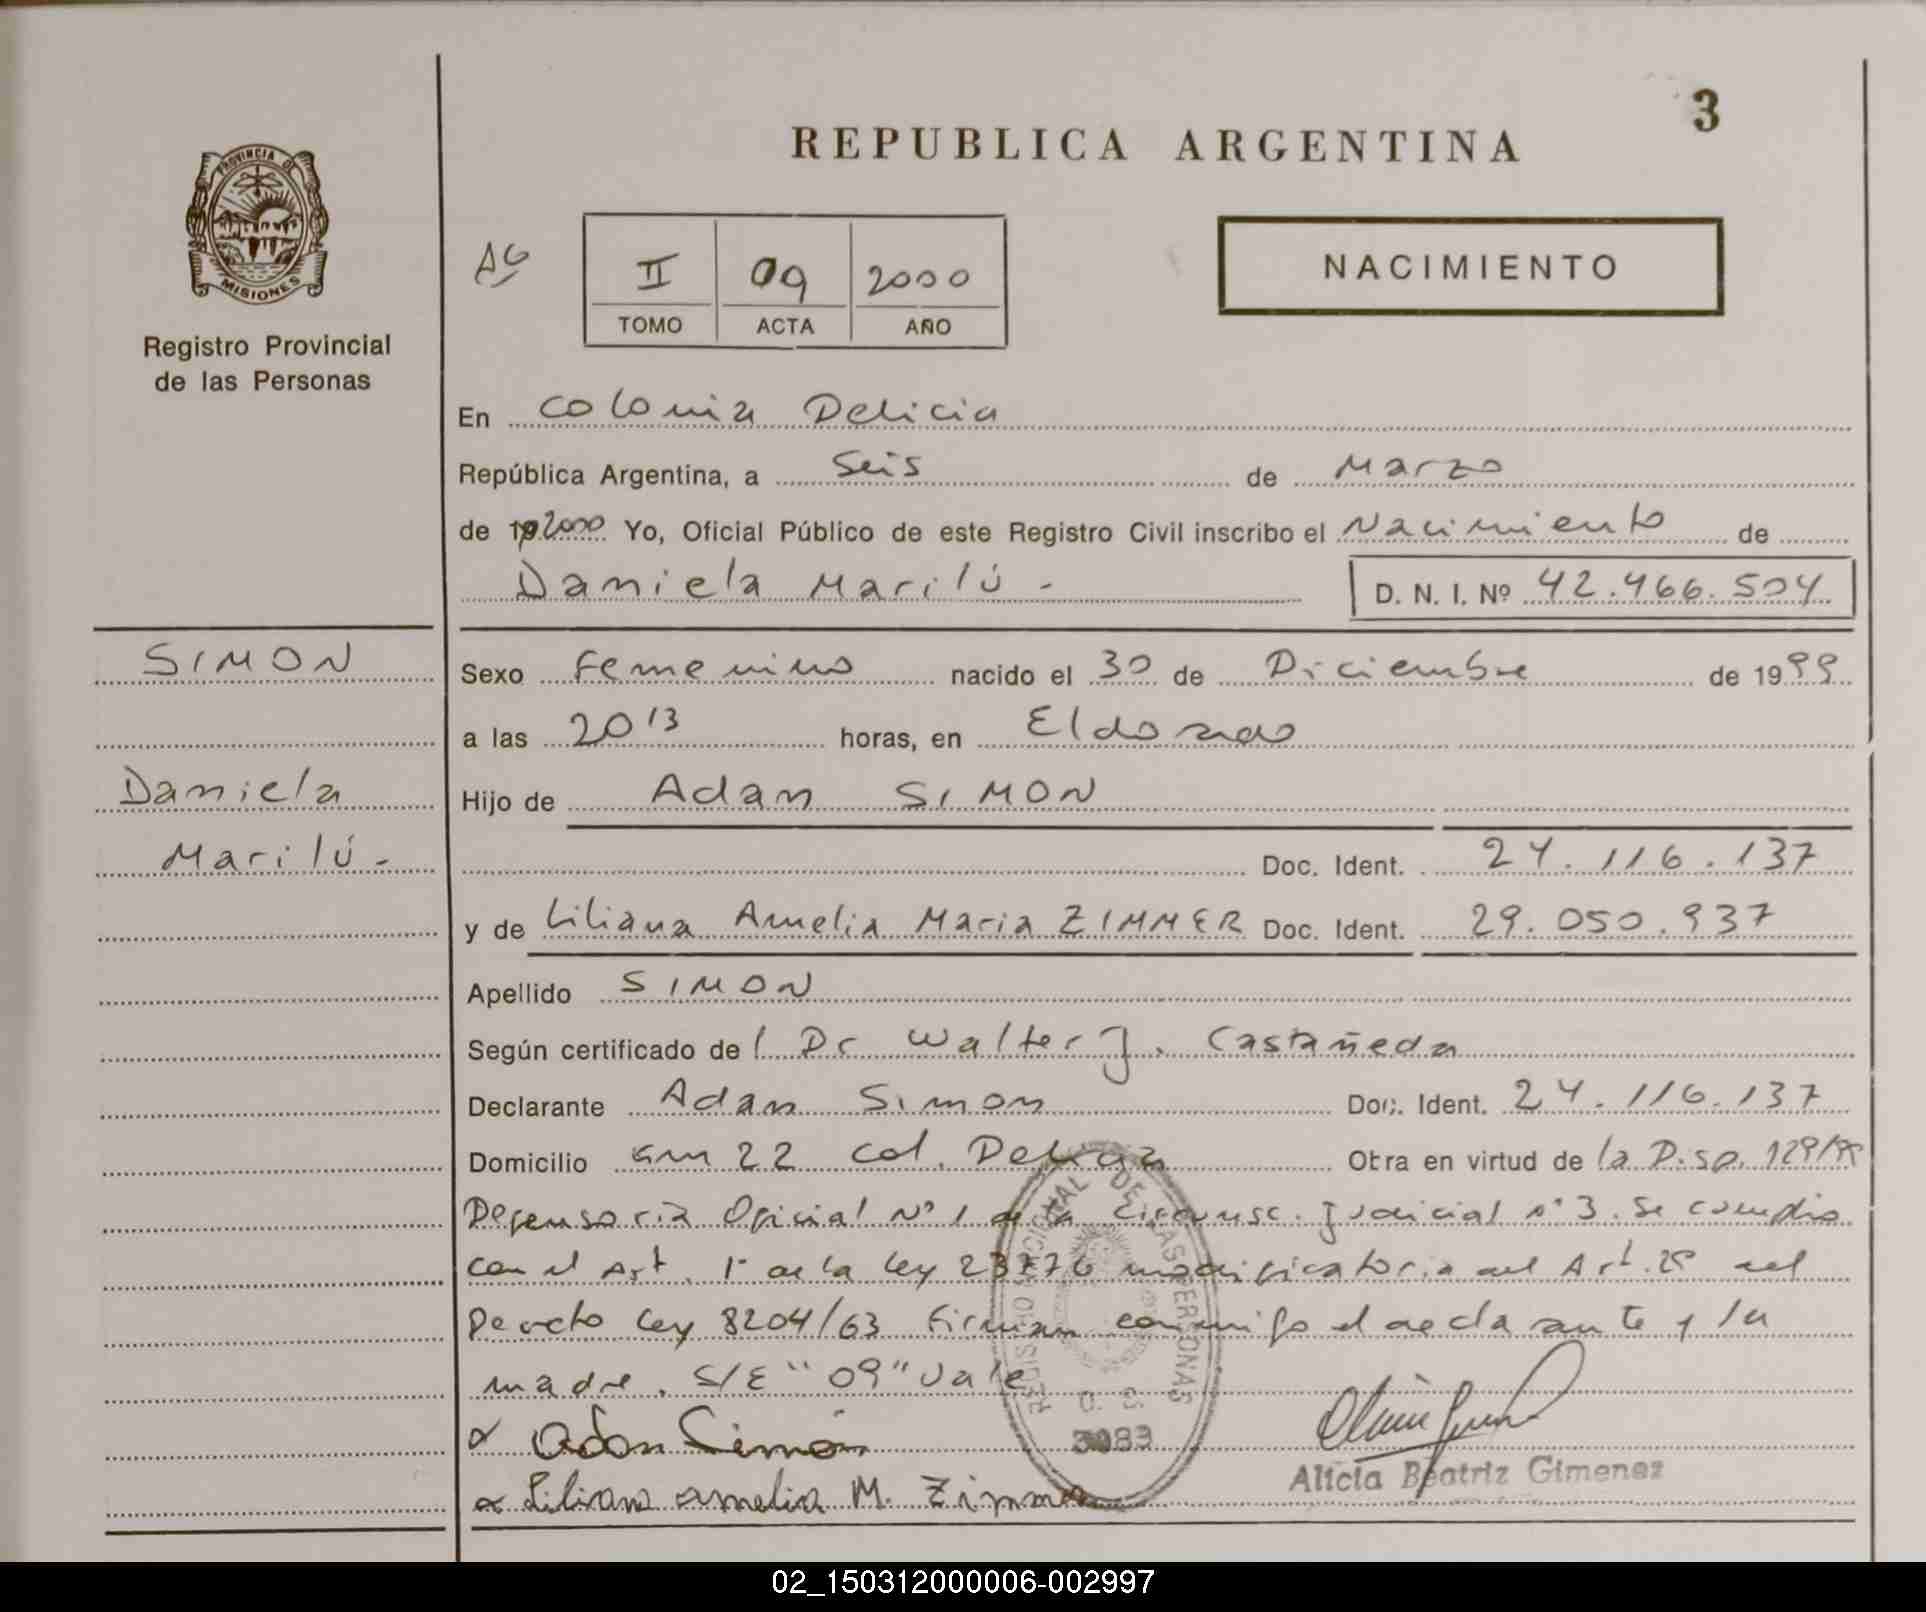 3
REPUBLICA ARGENTINA
PROVINCIA DE
MISIONES
Registro Provincial
de las Personas
AG
II 09 2000
TOMO ACTA AÑO
NACIMIENTO
En Colonia Delicia
República Argentina, a Seis de Marzo
de 19 2000 Yo, Oficial Público de este Registro Civil inscribo el Nacimiento de
Daniela Marilú - D. N. I. Nº 42.466.504
SIMON
Daniela
Marilú -
Sexo Femenino nacido el 30 de Diciembre de 1999
a las 20 13 horas, en Eldorado
Hijo de Adan SIMON
Doc. Ident. 24.116.137
y de Liliana Amelia Maria ZIMMER Doc. Ident. 29.050.937
Apellido SIMON
Según certificado del Dr Walter J. Castañeda
Declarante Adan Simon Doc. Ident. 24.116.137
Domicilio km 22 Col. Delicia Otra en virtud de la Disp. 129/99
Defensoria Oficial Nº 1 de la Circunsc. Judicial nº 3. Se cumplio
con el Art. 1º de la Ley 23776 modificatoria del Art. 29 del
Decreto Ley 8204/63 Firman conmigo el declarante y la
madre. S/E "09" Vale
Adan Simon
Liliana Amelia M. Zimmer
REGISTRO NACIONAL DE LAS PERSONAS
3083
Alicia Beatriz Gimenez
02_150312000006-002997